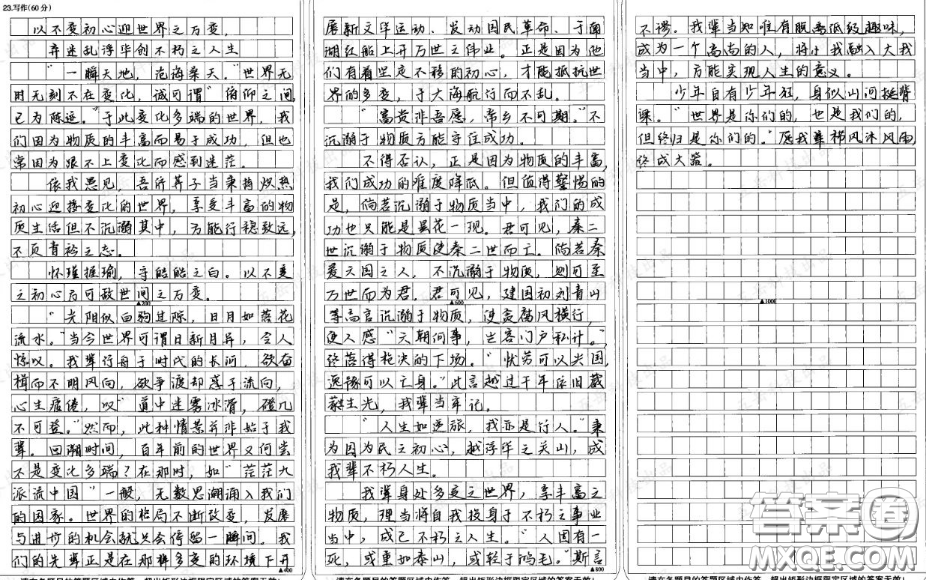 23.写作(60分)
以不变初心迎世界之万变,
弃迷乱浮华创不朽之人生
"一瞬天地,沧海桑天。"世界无
时无刻不在变化,诚可谓"俯仰之间,
已为陈迹。"于此变化多端的世界,我
们因为物质的丰富而易于成功,但也
常因为跟不上变化而感到迷茫。
依我愚见,吾所荐子当秉持炽热
初心迎接变化的世界,享受丰富的物
质生活但不沉溺其中,方能行稳致远,
不负青衿之志。
怀瑾握瑜,守皓皓之白。以不变
之初心方可敌世间之万变。
▲200
"光阴似白驹过隙,日月如落花
流水。"当今世界可谓日新月异,令人
惊叹。我辈行舟于时代的长河,欲奋
楫而不明风向,欲争渡却惑于流向,
心生疲倦,叹"道中迷雾冰滑,磴几
不可登。"然而,此种情景并非始于我
辈。回溯时间,百年前的世界又何尝
不是变化多端?在那时,如"茫茫九
派流中国"一般,无数思潮涌入我们
的国家。世界的格局不断改变,发展
与进步的机会就只会停留一瞬间。我
们的先辈正是在那样多变的环境下开
▲400
请在各题目的答题区域内作答,超出矩形边框限定区域的答案无效!
展新文华运动、发动国民革命、于南
湖红船上开万世之伟业。正是因为他
们有着坚定不移的初心,才能抵抗世
界的多变,于大海航行而不乱。
"富贵非吾愿,帝乡不可期。"不
沉溺于物质方能守住成功。
不得否认,正是因为物质的丰富,
我们成功的难度降低。但值得警惕的
是,倘若沉溺于物质当中,我们的成
功也只能是昙花一现。君可见,秦二
世沉溺于物质使秦二世而亡。倘若秦
爱六国之人,不沉溺于物质,则可至
万世而为君。君可见,建国初刘青山
▲600
等高官沉溺于物质,使贪腐风横行,
使人感"天朝何事,岂容门户私计。"
终落得枪决的下场。"忧劳可以兴国,
逸豫可以亡身。"此言越过千年依旧熠
熠生光,我辈当牢记。
"人生如逆旅,我亦是行人。"秉
为国为民之初心,越浮华之关山,成
我辈不朽人生。
我辈身处多变之世界,享丰富之
物质,理当将自我投身于不朽之事业
当中,成己不朽之人生。"人固有一
死,或重如泰山,或轻于鸿毛。"斯言
▲800
请在各题目的答题区域内作答,超出矩形边框限定区域的答案无效!
不谬。我辈当知唯有脱离低级趣味,
成为一个高尚的人,将小我融入大我
当中,方能实现人生的意义。
少年自有少年狂,身似山河挺脊
梁。"世界是你们的,也是我们的,
但终归是你们的。"愿我辈栉风沐风雨,
终成大器。
▲1000
请在各题目的答题区域内作答,超出矩形边框限定区域的答案无效!
答案圈
MXQE.COM